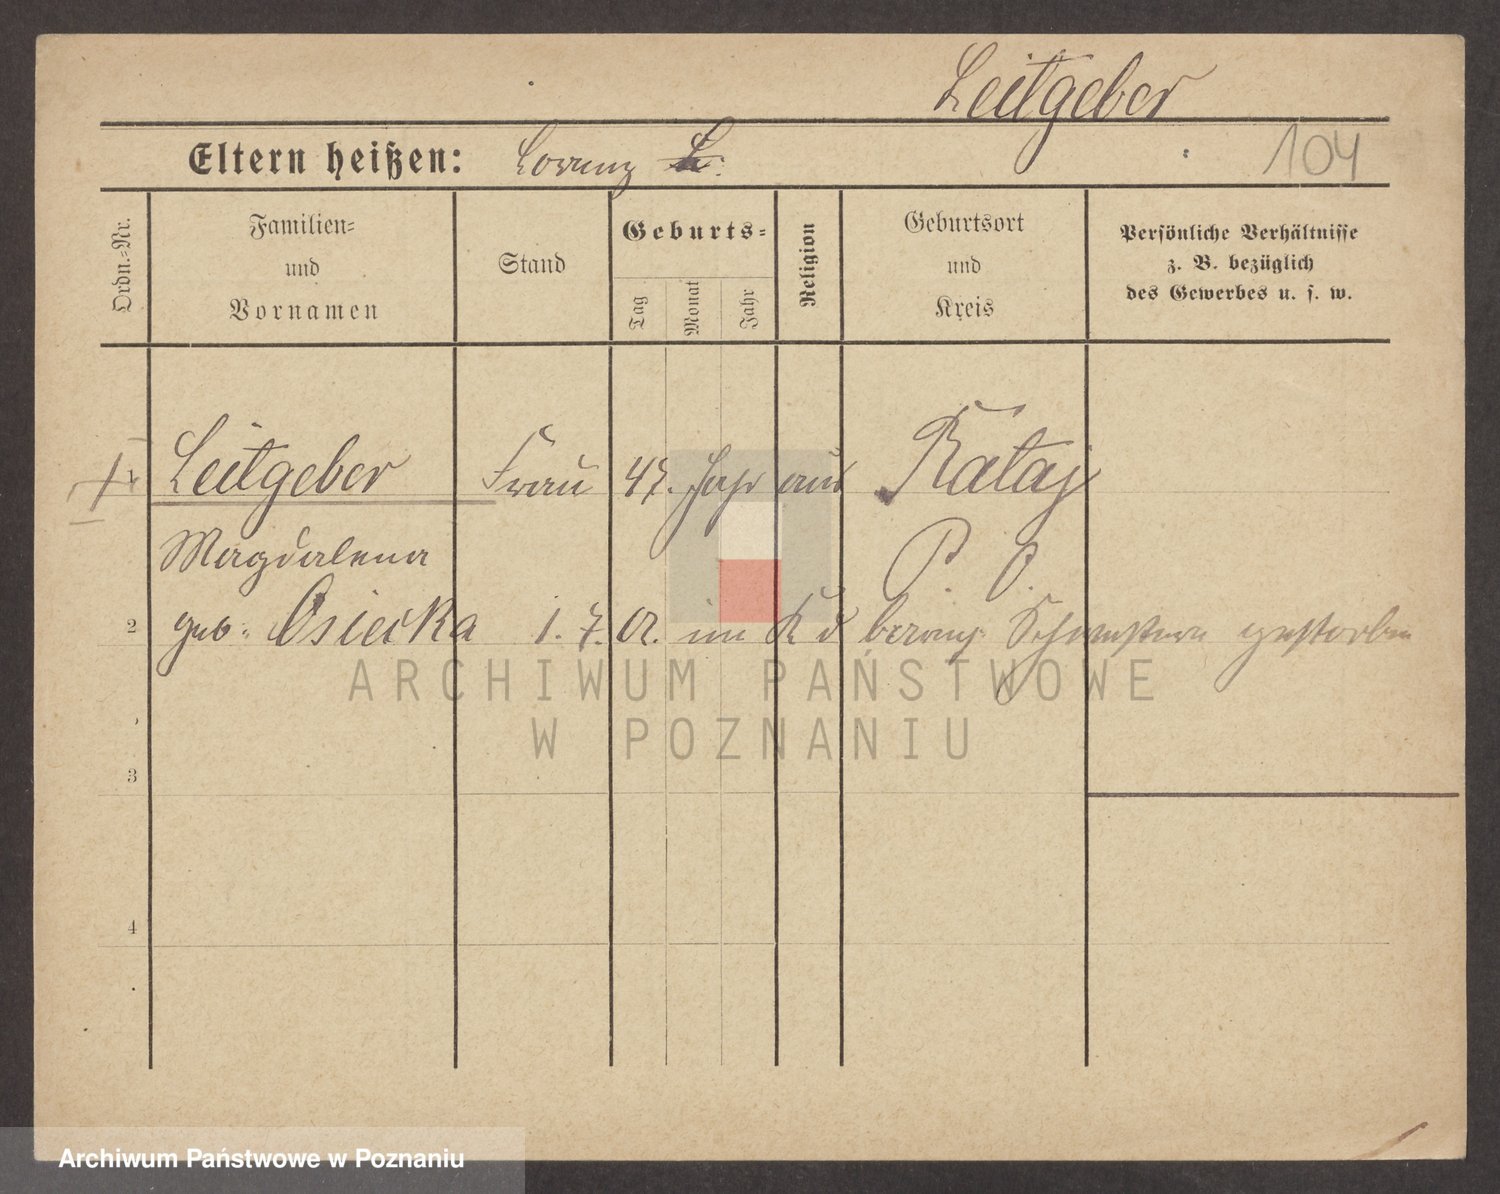 Leitgeber
104
Eltern heißen: Lorenz L.
Ordn.-Nr.
Familien-
und
Vornamen
Stand
Geburts-
Tag
Monat
Jahr
Religion
Geburtsort
und
Kreis
Persönliche Verhältnisse
z. B. bezüglich
des Gewerbes u. s. w.
1 Leitgeber Frau 47. Jahr aus Rataj
Magdalena P. O.
2 geb. Osiecka 1. 7. 01. im K d barmh. Schwestern gestorben
3
4
ARCHIWUM PAŃSTWOWE
W POZNANIU
Archiwum Państwowe w Poznaniu